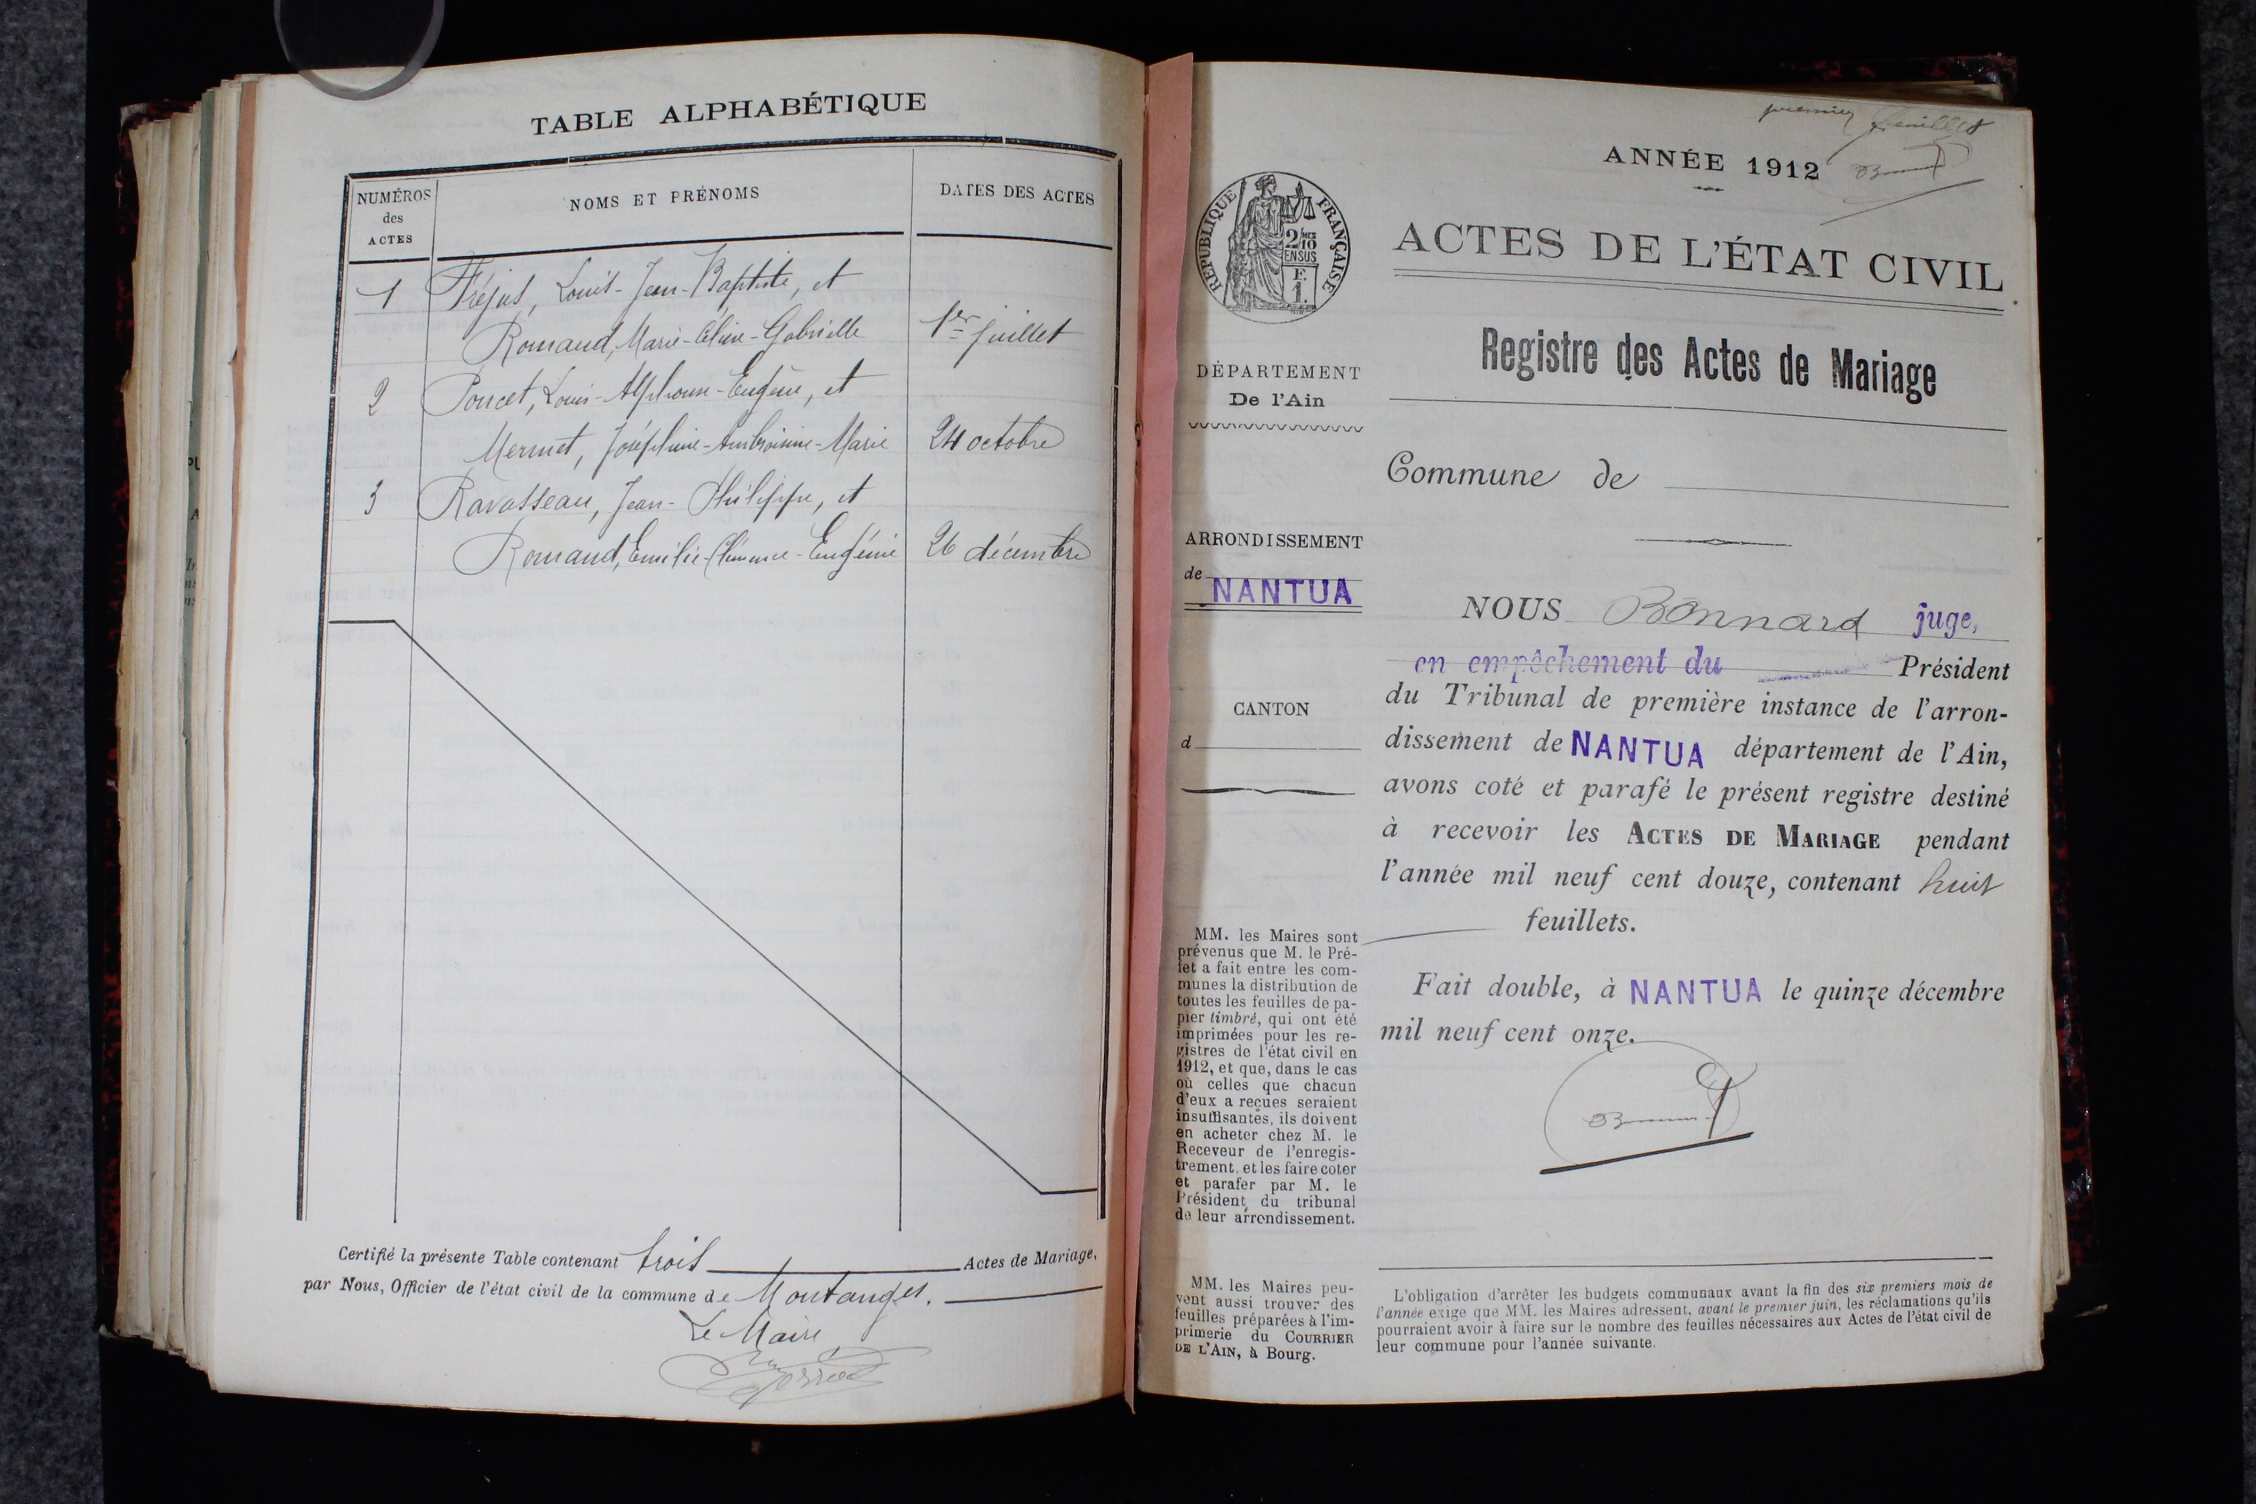 TABLE ALPHABÉTIQUE
NUMÉROS
des
ACTES
NOMS ET PRÉNOMS
DATES DES ACTES
1 Fréjus, Louis-Jean-Baptiste, et
Romand, Marie-Céline-Gabrielle 1er Juillet
2 Poncet, Louis-Alphonse-Eugène, et
Mermet, Joséphine-Ambroisine-Marie 24 octobre
3 Ravasseau, Jean-Philippe, et
Romand, Emilie-Clémence-Eugénie 26 décembre
Certifié la présente Table contenant trois Actes de Mariage,
par Nous, Officier de l'état civil de la commune de Montanges.
Le Maire
premier feuillet
ANNÉE 1912
RÉPUBLIQUE FRANÇAISE
2/10
EN SUS
F.
1.
ACTES DE L'ÉTAT CIVIL
Registre des Actes de Mariage
DÉPARTEMENT
De l'Ain
Commune de
ARRONDISSEMENT
de NANTUA
CANTON
d
NOUS Bonnard juge,
en empêchement du Président
du Tribunal de première instance de l'arron-
dissement de NANTUA département de l'Ain,
avons coté et parafé le présent registre destiné
à recevoir les ACTES DE MARIAGE pendant
l'année mil neuf cent douze, contenant huit
feuillets.
Fait double, à NANTUA le quinze décembre
mil neuf cent onze.
MM. les Maires sont
prévenus que M. le Pré-
fet a fait entre les com-
munes la distribution de
toutes les feuilles de pa-
pier timbré, qui ont été
imprimées pour les re-
gistres de l'état civil en
1912, et que, dans le cas
où celles que chacun
d'eux a reçues seraient
insuffisantes, ils doivent
en acheter chez M. le
Receveur de l'enregis-
trement, et les faire coter
et parafer par M. le
Président du tribunal
de leur arrondissement.
MM. les Maires peu-
vent aussi trouver des
feuilles préparées à l'im-
primerie du COURRIER
DE L'AIN, à Bourg.
L'obligation d'arrêter les budgets communaux avant la fin des six premiers mois de
l'année exige que MM. les Maires adressent, avant le premier juin, les réclamations qu'ils
pourraient avoir à faire sur le nombre des feuilles nécessaires aux Actes de l'état civil de
leur commune pour l'année suivante.